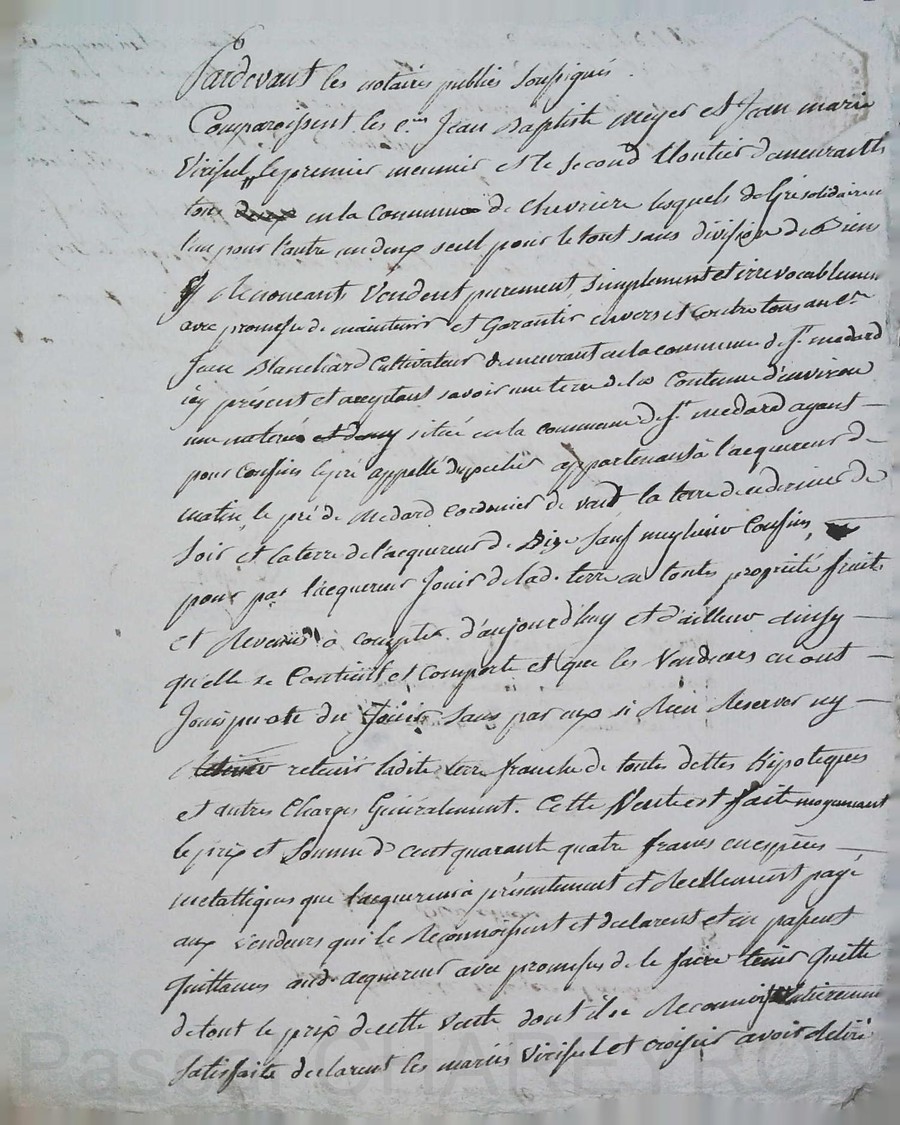 Pardevant les notaires publics soussignés.
Comparoissent les c.ens Jean Baptiste meyer et Jean marie
Viricel, le premier meunier et le second cloutier demeurants
tous deux en la commune de chevrière lesquels de Gré solidairement
l'un pour l'autre un deux seul pour le tout sans division de Bien
y Renonceants Vendent purement, simplement et irrevocablement
avec promesse de maintenir et Garantir envers et contre tous au c.en
Jean Blanchard Cultivateur demeurant en la commune de St. medard
icy présent et acceptant savoir une terre de la Contenue d'environ
une meterée et demy située en la commune de St. medard ayant
pour confins le pré appellé appartenant à l'acquereur de
matin, le pré de Medard cordonier de vent la terre de
soir et la terre de l'acquereur de Bize sauf meylieur Confins,
pour par l'acquereur Jouir de lad. terre en toute propriété fruits
et Revenus à compter d'aujourd'huy et d'ailleur ainsy
qu'elle se Contient et Comporte et que les Vendeurs en ont
Jouis pu ou du Jouir sans par eux si Rien Reserver ny
retenir ladite terre franche de toutes dettes hipoteques
et autres Charges Généralement. Cette Vente est faite moyennant
le prix et somme de cent quarant quatre francs en espèces
metalliques que l'acquereur a présentement et Reellement payé
aux vendeurs qui le Reconnoissent et declarent et en passent
quittances aud. acquereur avec promesses de le faire tenir quitte
de tout le prix de cette vente dont il se Reconnoissent
satisfaits declarent les mariés Viricel et croizier avoir delivré
Pascal CHAREYRON